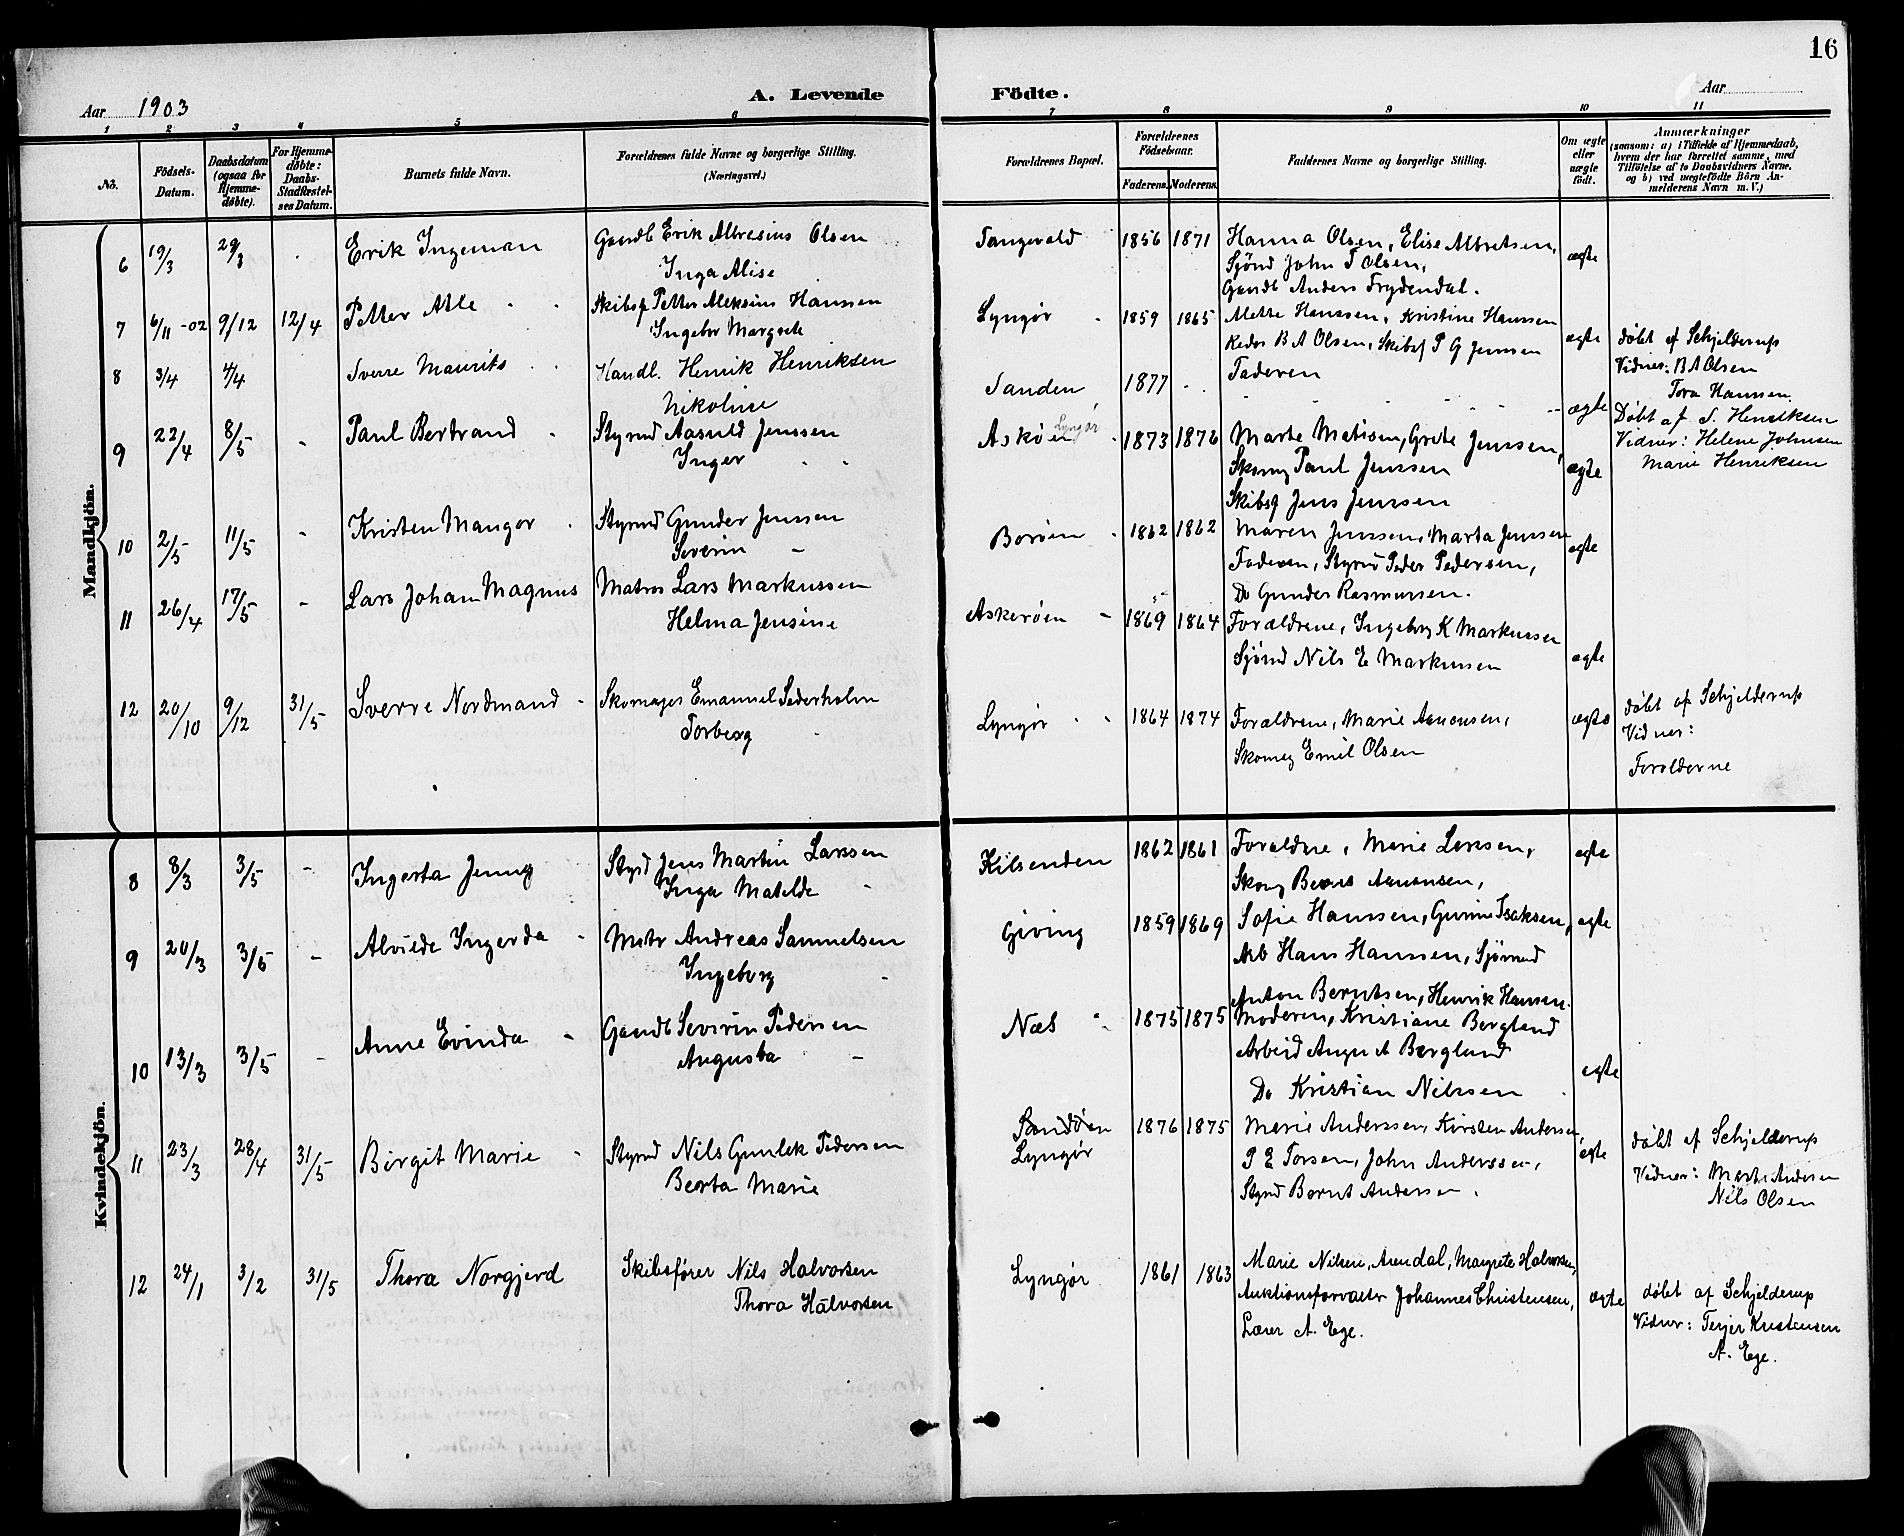 16
Aar 1903
A. Levende Födte.
Aar
1 2 3 4 5 6 7 8 9 10 11
No.
Födsels-Datum.
Daabsdatum (ogsaa for Hjemme-döbte).
For Hjemme-döbte: Daabs-Stadfæstel-ses Datum.
Barnets fulde Navn.
Forældrenes fulde Navne og borgerlige Stilling.
(Næringsvei.)
Forældrenes Bopæl.
Forældrenes Födselsaar.
Faderens. Moderens.
Faddernes Navne og borgerlige Stilling.
Om ægte eller uægte födt.
Anmærkninger
(saasom: a) i Tilfælde af Hjemmedaab,
hvem der har forrettet samme, med
Tilföielse af to Daabsvidners Navne,
og b) ved uægtefödte Börn An-
melderens Navn m. V.)
Mandkjön.
6 19/3 29/3 Erik Ingeman Gaardb Erik Albresius Olsen Tangevald 1856 1871 Hanna Olsen, Elise Albretsen, ægte
Inga Alise Sjømd John T Olsen,
Gaardb Anders Frydendal.
7 6/11 -02 9/12 12/4 Petter Atle Skibsf Petter Aleksius Hanssen Lyngør 1859 1865 Mette Hanssen, Kristine Hanssen ægte døbt af Schjelderup
Ingebor Margrete Reder B A Olsen, Skibsf P G Jenssen Vidner: B A Olsen
Tora Hanssen.
8 3/4 4/4 Sverre Maurits Handl. Henrik Henriksen Sanden 1877 Faderen ægte Døbt af S. Henriksen
Nikoline Vidner: Helene Johnsen
Marie Henriksen
9 22/4 8/5 - Paul Bertrand Styrmd Aasuld Jenssen Askøen Lyngør 1873 1876 Marte Matisen, Grete Jenssen, ægte
Inger Skomg Paul Jenssen
Skibsf Jens Jenssen
10 2/5 11/5 - Kristen Mangor Styrmd Gunder Jenssen Borøen 1862 1862 Maren Jenssen, Marta Jenssen ægte
Severin - Faderen, Styrm Peder Pedersen,
Do Gunder Rasmussen.
11 26/4 17/5 - Lars Johan Magnus Matros Lars Markussen Askerøen - 1869 1864 Forældrene, Ingeborg K Markussen ægte
Helma Jensine Sjømd Nils E Markussen
12 20/10 9/12 31/5 Sverre Nordmand - Skomager Emanuel Sederholm Lyngør 1864 1874 Forældrene, Marie Aanonsen, ægte døbt af Schjelderup
Torberg Skomag Emil Olsen Vidner:
Forælderne
Kvindekjön.
8 8/3 3/5 - Ingerta Jenny Styrd Jens Martin Larssen Kilsenden 1862 1861 Forældrne, Marie Larssen, ægte
Inga Matilde - Skomg Aanonsen,
9 20/3 3/5 - Alvilde Ingerda - Matr Andreas Samuelsen Giving 1859 1869 Sofie Hanssen, Gurine Isaksen, ægte
Ingeborg - Arb Hans Hanssen, Sjømand
Anton Berntsen, Henrik Hansen.
10 13/3 3/5 - Anne Evinda - Gaardb Severin Pedersen Næs 1875 1875 Moderen, Kristiane Bergland ægte
Augusta - Arbeid Augu A Bergland
Do Kristian Nilssen
11 23/3 28/4 31/5 Birgit Marie - Styrmd Nils Gunlek Pedersen Sandøen 1876 1875 Marie Anderssen, Kirsten Andersen, ægte døbt af Schjelderup
Berta Marie Lyngør P E Torsen, John Anderssen, Vidner: Marte Andersen
Styrd Bernt Andersen. Nils Olsen
12 24/1 3/2 31/5 Thora Norgjerd Skibsfører Nils Halvorsen Lyngør 1861 1863 Marie Nilsen, Arendal, Margrete Halvorsen, ægte døbt af Schjelderup
Thora Halvorsen Auktionsforvalter Johannes Christensen, Vidner: Terjer Kristensen
Lærer A. Ege. A. Ege.